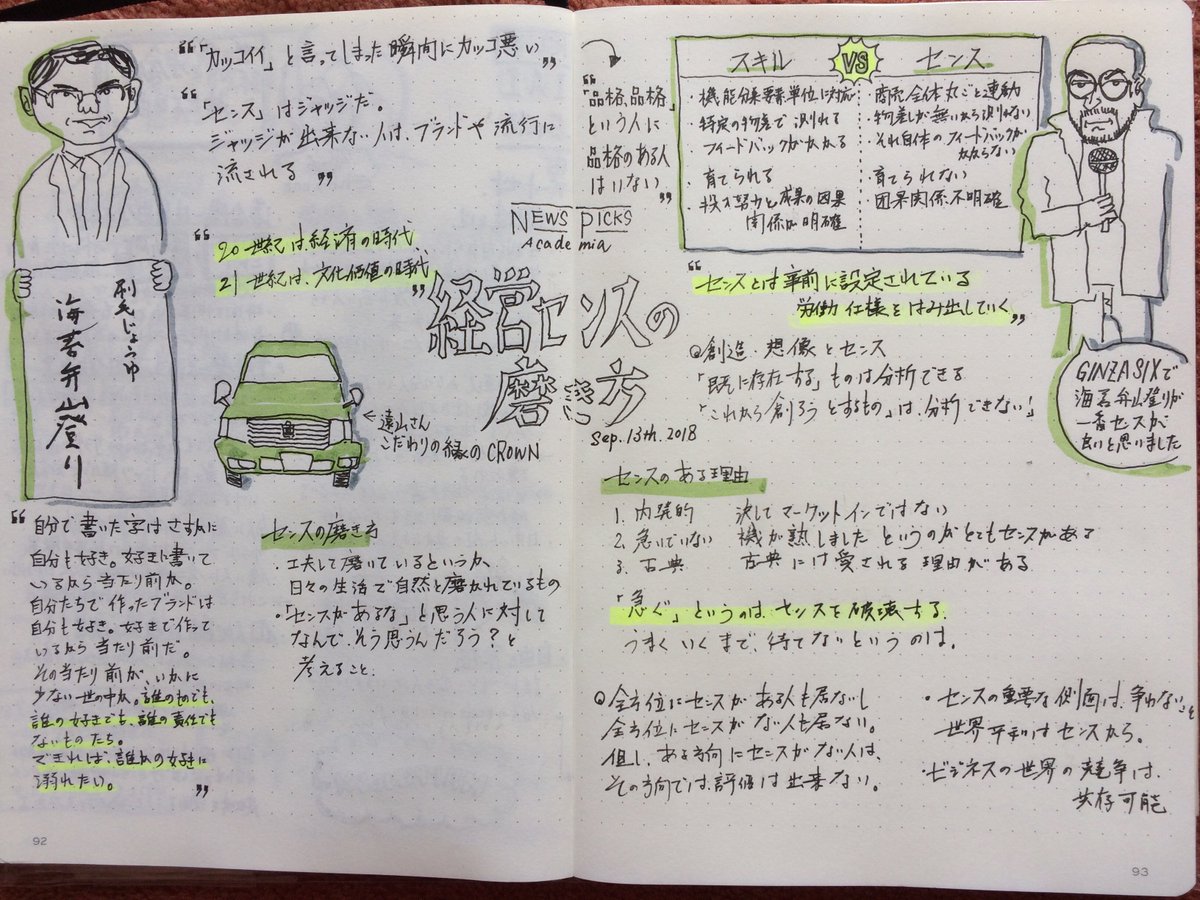 “「カッコイイ」と言ってしまった瞬間にカッコ悪い”
“「センス」はジャッジだ。
ジャッジが出来ない人は、ブランドや流行に
流される”
“20世紀は経済の時代
21世紀は、文化価値の時代”
海苔弁山登り
NEWS PICKS
Academia
経営センスの
磨き方
Sep. 13th. 2018
←遠山さん
こだわりの緑のCROWN
“自分で書いた字はさすがに
自分も好き。好きに書いて
いるから当たり前か。
自分たちで作ったブランドは
自分も好き。好きで作って
いるから当たり前だ。
その当たり前が、いかに
少ない世の中か。誰のものでも、
誰の好きでも、誰の責任でも
ないものたち。
できれば、誰かの好きに
溺れたい。”
センスの磨き方
・工夫して磨いているというか、
日々の生活で自然と磨かれているもの
・「センスがあるな」と思う人に対して
なんで、そう思うんだろう?と
考えること.
92
“「品格、品格」
という人に
品格のある人
はいない”
スキル VS センス
・機能分業要素単位に対応
・特定の物差で測れる
・フィードバックがかかる
・育てられる
・投入努力と成果の因果
関係が明確
・商売全体丸ごと連動
・物差しが無いから測れない
・それ自体のフィードバックが
かからない
・育てられない
・因果関係不明確
“センスとは事前に設定されている
労働仕様をはみ出していく”
◎創造・想像とセンス
「既に存在する」ものは分析できる
「これから創ろうとするもの」は、分析できない!
GINZA SIXで
海苔弁山登りが
一番センスが
良いと思いました
センスのある理由
1. 内発的 決してマーケットインではない
2. 急いでいない 機が熟しましたというのがとてもセンスがある
3. 古典 古典には愛される理由がある
「急ぐ」というのは、センスを破壊する.
うまくいくまで、待てないというのは。
◎全方位にセンスがある人も居ないし
全方位にセンスがない人も居ない。
但し、ある方向にセンスがない人は、
その方向では、評価は出来ない。
・センスの重要な側面は、争わないこと
世界平和はセンスから。
・ビジネスの世界の競争は、
共存可能
93